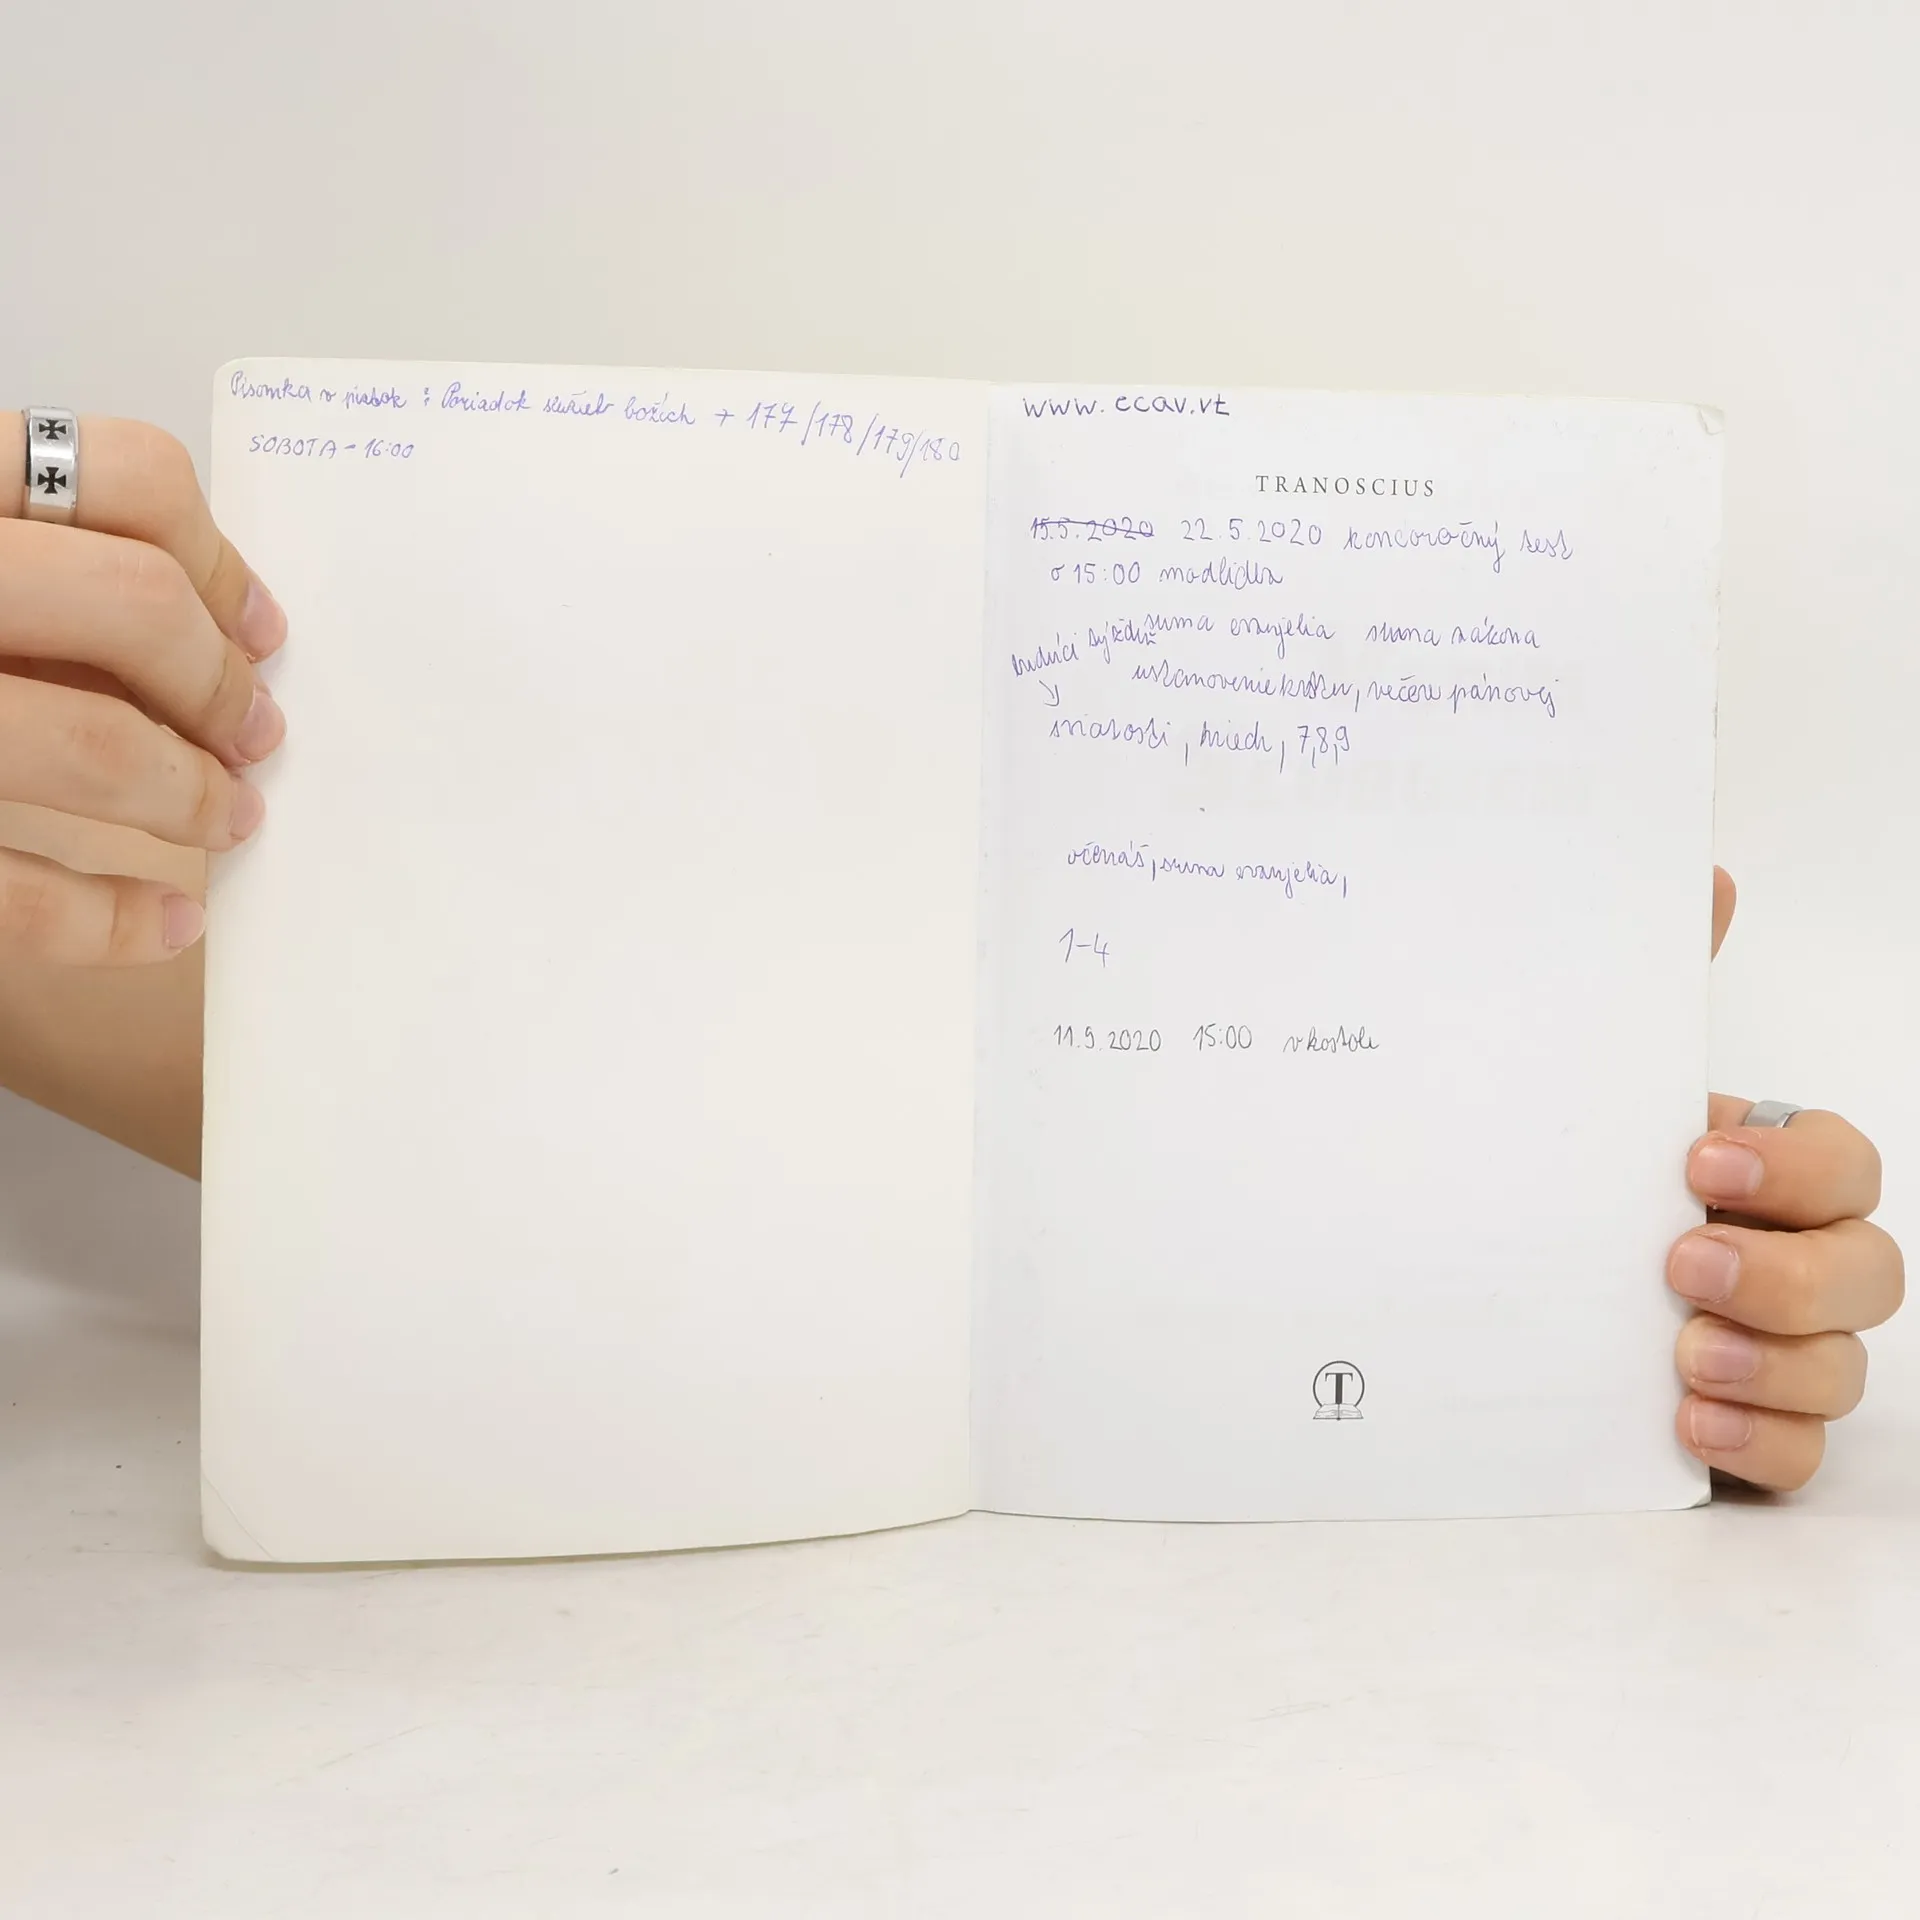 Písomka v piatok : Poriadok služieb božích + 177/178/179/180
SOBOTA - 16:00
www.ecav.vt
TRANOSCIUS
15.5.2020 22.5.2020 koncoročný test
o 15:00 modlidba
budúci týždeň suma evanjelia suma zákona
ustanovenie krstu, večere pánovej
sviatosti, hriech, 7,8,9
očenáš, suma evanjelia,
1-4
11.9.2020 15:00 v kostole
T